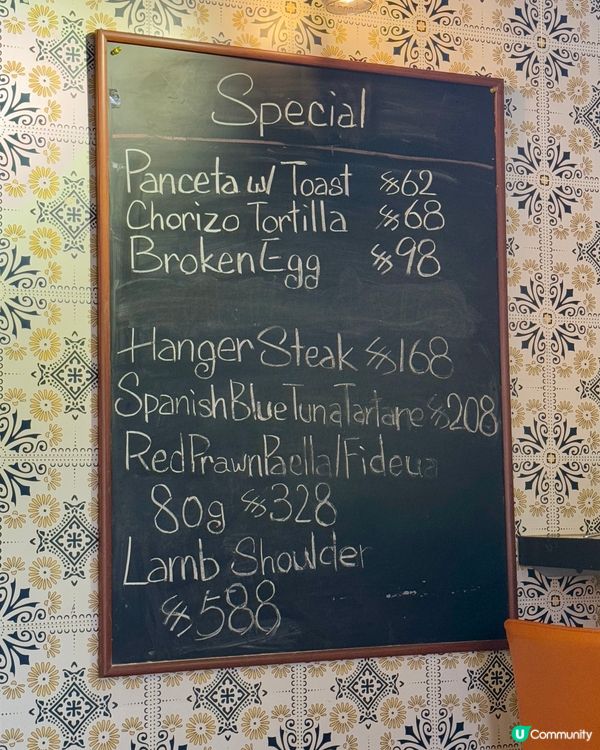 Special
Panceta w/ Toast $62
Chorizo Tortilla $68
Broken Egg $98
Hanger Steak $168
Spanish Blue Tuna Tartare $208
Red Prawn Paella/Fideua
80g $328
Lamb Shoulder
$588
U Community